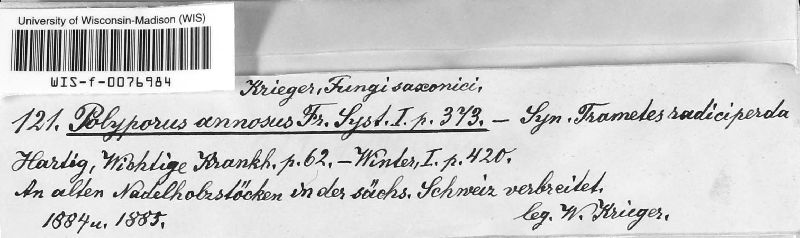 University of Wisconsin-Madison (WIS)
WIS-f-0076984
Krieger, Fungi saxonici.
121. Polyporus annosus Fr. Syst. I. p. 373. – Syn. Trametes radiciperda
Hartig, Wichtige Krankh. p. 62. – Winter, I. p. 420.
An alten Nadelholzstöcken in der sächs. Schweiz verbreitet.
1884 u. 1885. leg. W. Krieger.